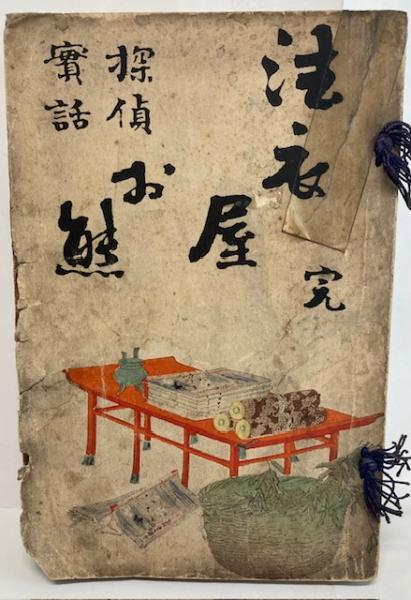 法衣屋
お熊
完
探偵
實話